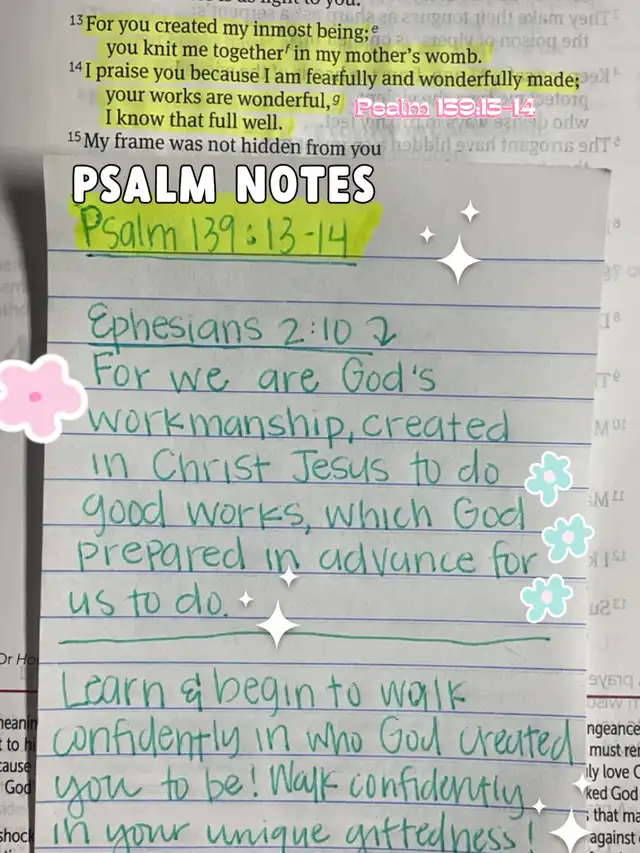 13 For you created my inmost being;e
you knit me togetherf in my mother's womb.
14 I praise you because I am fearfully and wonderfully made;
your works are wonderful,g
Psalm 139:13-14
I know that full well.
15 My frame was not hidden from you
PSALM NOTES
Psalm 139:13-14
Ephesians 2:10
For we are God's
workmanship, created
in Christ Jesus to do
good works, which God
prepared in advance for
us to do.
Learn & begin to walk
confidently in who God created
you to be! Walk confidently
in your unique giftedness!